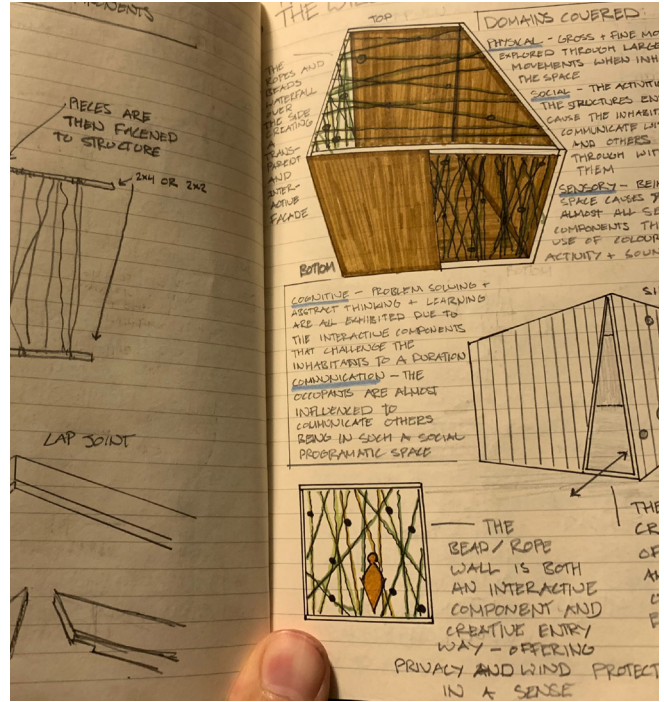 PONENTS
PIECES ARE
THEN FACENED
TO STRUCTURE
2x4 OR 2x2
LAP JOINT
THE
TOP
THE
ROPES AND
BEADS
WATERFALL
OVER
THE SIDE
CREATING
A
TRANS-
PARENT
AND
INTER-
ACTIVE
FACADE
BOTTOM
DOMAINS COVERED:
PHYSICAL - GROSS + FINE MO
EXPLORED THROUGH LARGE
MOVEMENTS WHEN INH
THE SPACE
SOCIAL - THE ACTIVITI
THE STRUCTURES EN
CAUSE THE INHABIT
COMMUNICATE WIT
AND OTHERS
THROUGH WIT
THEM
SENSORY - BEIN
SPACE CAUSES
ALMOST ALL SE
COMPONENTS TH
USE OF COLOUR
ACTIVITY + SOUN
BOTTOM
COGNITIVE - PROBLEM SOLVING +
ABSTRACT THINKING + LEARNING
ARE ALL EXHIBITED DUE TO
THE INTERACTIVE COMPONENTS
THAT CHALLENGE THE
INHABITANTS TO A DURATION
COMMUNICATION - THE
OCCUPANTS ARE ALMOST
INFLUENCED TO
COMMUNICATE OTHERS
BEING IN SUCH A SOCIAL
PROGRAMATIC SPACE
SI
THE
BEAD/ROPE
WALL IS BOTH
AN INTERACTIVE
COMPONENT AND
CREATIVE ENTRY
WAY - OFFERING
PRIVACY AND WIND PROTECT
IN A SENSE
THE
CR
OF